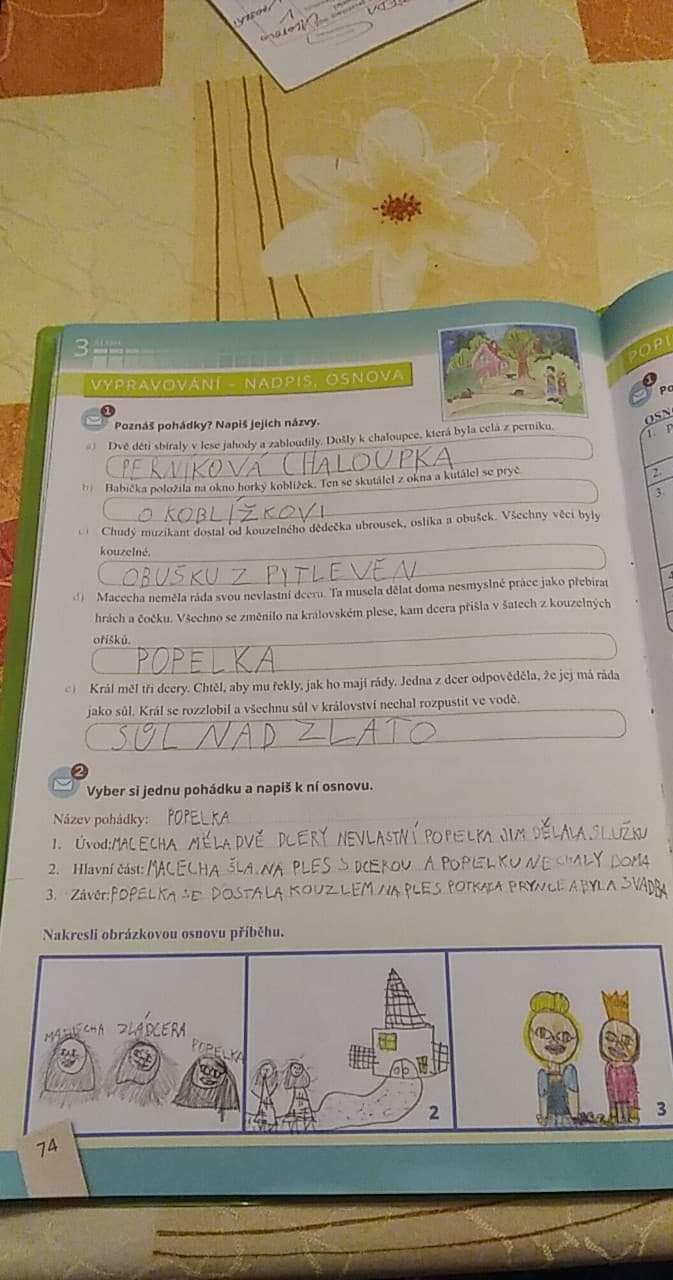 3
VYPRAVOVÁNÍ – NADPIS, OSNOVA
POPI
1
Poznáš pohádky? Napiš jejich názvy.
a) Dvě děti sbíraly v lese jahody a zabloudily. Došly k chaloupce, která byla celá z perníku.
PERNÍKOVÁ CHALOUPKA
b) Babička položila na okno horký koblížek. Ten se skutálel z okna a kutálel se pryč.
O KOBLÍŽKOVI
c) Chudý muzikant dostal od kouzelného dědečka ubrousek, oslíka a obušek. Všechny věci byly
kouzelné.
OBUŠKU Z PYTLE VEN
d) Macecha neměla ráda svou nevlastní dceru. Ta musela dělat doma nesmyslné práce jako přebírat
hrách a čočku. Všechno se změnilo na královském plese, kam dcera přišla v šatech z kouzelných
oříšků.
POPELKA
e) Král měl tři dcery. Chtěl, aby mu řekly, jak ho mají rády. Jedna z dcer odpověděla, že jej má ráda
jako sůl. Král se rozzlobil a všechnu sůl v království nechal rozpustit ve vodě.
SŮL NAD ZLATO
2
Vyber si jednu pohádku a napiš k ní osnovu.
Název pohádky: POPELKA
1. Úvod: MACECHA MĚLA DVĚ DCERY NEVLASTNÍ POPELKA JIM DĚLALA SLUŽKU
2. Hlavní část: MACECHA ŠLA NA PLES S DCEROU A POPELKU NECHALY DOMA
3. Závěr: POPELKA SE DOSTALA KOUZLEM NA PLES POTKALA PRYNCE A BYLA SVADBA
Nakresli obrázkovou osnovu příběhu.
MACECHA ZLÁ DCERA POPELKA
2
3
74
1
OSN
1. P
2.
3.